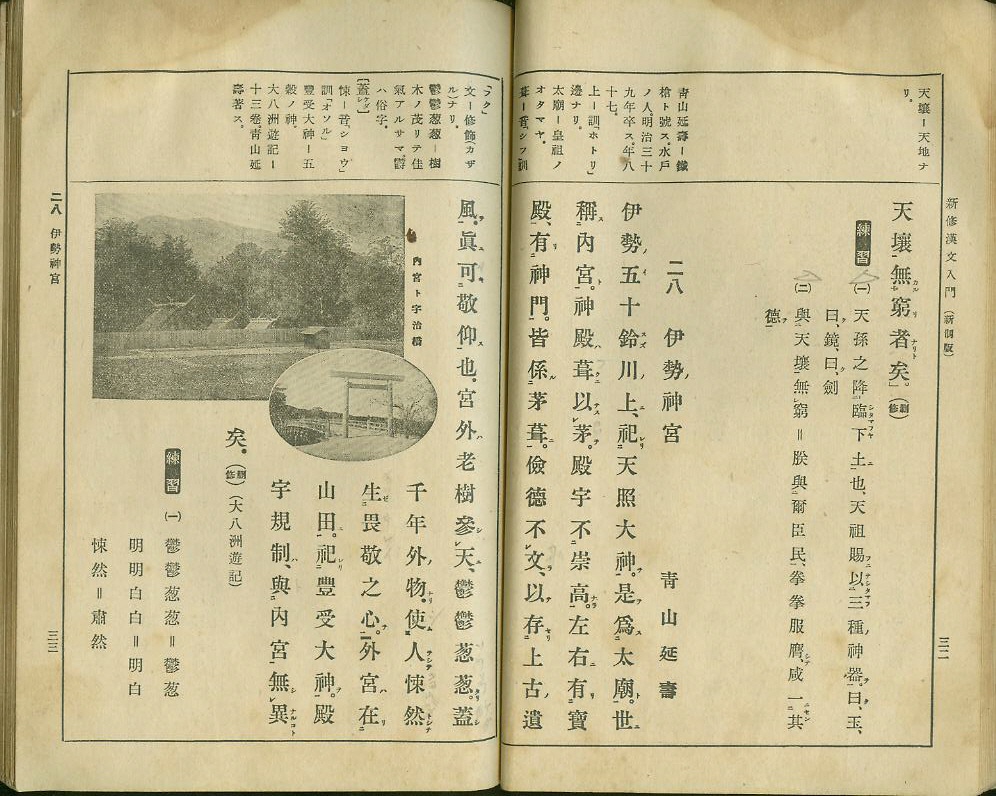 新修漢文入門(新制版)
三二
天壤ー天地ナ
リ。
靑山延壽ー鐵
槍ト號ス。水戶
ノ人。明治三十
九年卒ス。年八
十七。
上ー訓「ホトリ」
邊ナリ。
太廟ー皇祖ノ
オタマヤ。
葺ー音「シフ」訓
天壤無窮者矣。」(刪修)
練習
(一)天孫之降臨下土也、天祖賜以三種神器。曰玉、
曰鏡、曰劍
(二)與天壤無窮=朕與爾臣民、拳拳服膺、咸一其
德
二八 伊勢神宮 靑山延壽
伊勢五十鈴川上、祀天照大神。是爲太廟。世
稱內宮。神殿葺以茅。殿宇不崇高。左右有寶
殿、有神門。皆係茅葺。儉德不文、以存上古遺
「フク」
文ー修飾(カザ
ル)ナリ。
鬱鬱葱葱ー樹
木ノ茂リテ佳
氣アルサマ。鬱
ハ俗字。
[蓋ケダシ]
悚ー音「ショウ」
訓「オソル」
豐受大神ー五
穀ノ神。
大八洲遊記ー
十三卷。靑山延
壽著ス。
風。眞可敬仰也。宮外老樹參天、鬱鬱葱葱。蓋
千年外物。使人悚然
生畏敬之心。外宮在
山田。祀豐受大神。殿
宇規制、與內宮無異
矣。(刪修)(大八洲遊記)
內宮ト宇治橋
練習
(一)鬱鬱葱葱=鬱葱
明明白白=明白
悚然=肅然
二八 伊勢神宮
三三